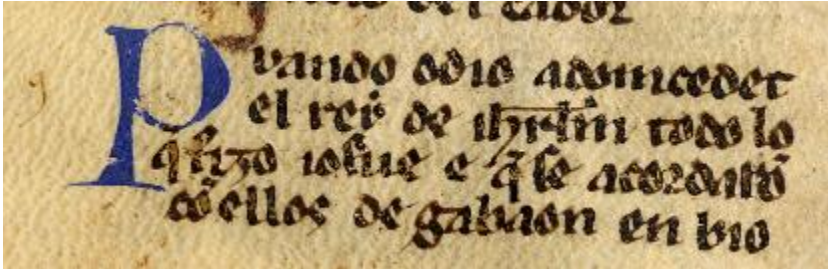 del tabor
P uando odio adonicedec
el rey de ihrl̃m todo lo
q̃ fizo iosue e q̃ se acordarõ
cõ ellos de gabaon en bio